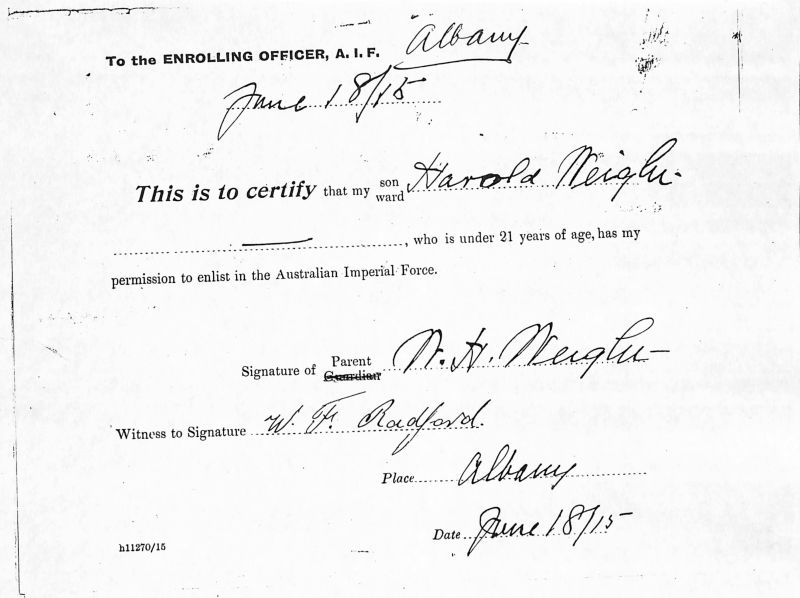 To the ENROLLING OFFICER, A. I. F. Albany
June 18/15
This is to certify that my son ward Harold Weigler
, who is under 21 years of age, has my
permission to enlist in the Australian Imperial Force.
Signature of Parent Guardian W. H. Weigler
Witness to Signature W. F. Radford.
Place Albany
Date June 18/15
h11270/15